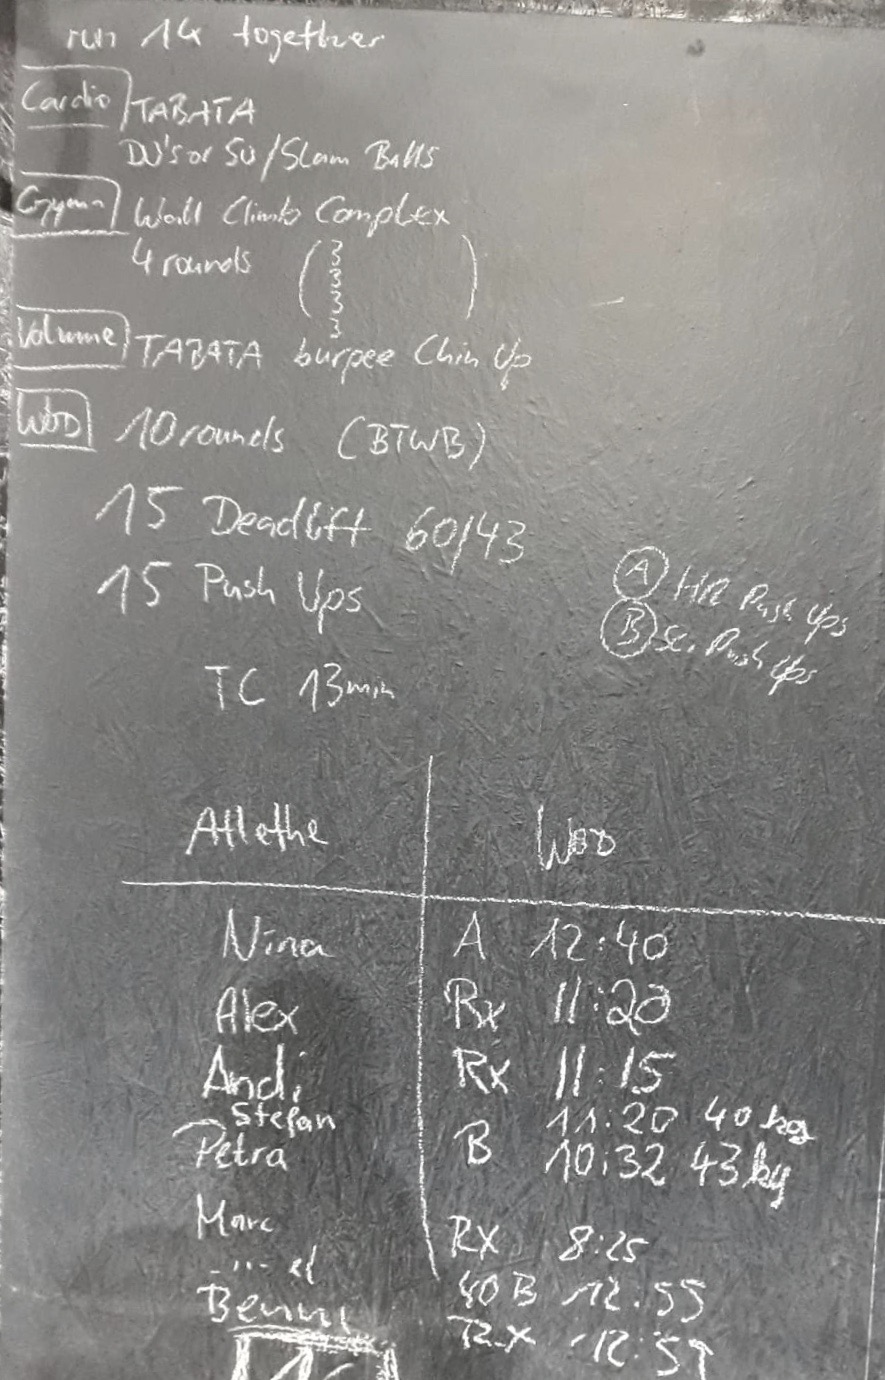 run 1k together
Cardio TABATA
DU's or SU/Slam Balls
Gymn Wall Climb Complex
4 rounds (3
3
3
3)
Volume TABATA burpee Chin Up
WOD 10 rounds (BTWB)
15 Deadlift 60/43
15 Push Ups
A HR Push Ups
B Sc. Push Ups
TC 13min
Atlethe WOD
Nina A 12:40
Alex Rx 11:20
Andi Rx 11:15
Stefan 11:20 40kg
Petra B 10:32 43kg
Marc RX 8:25
40 B 12:55
Benni 12:5